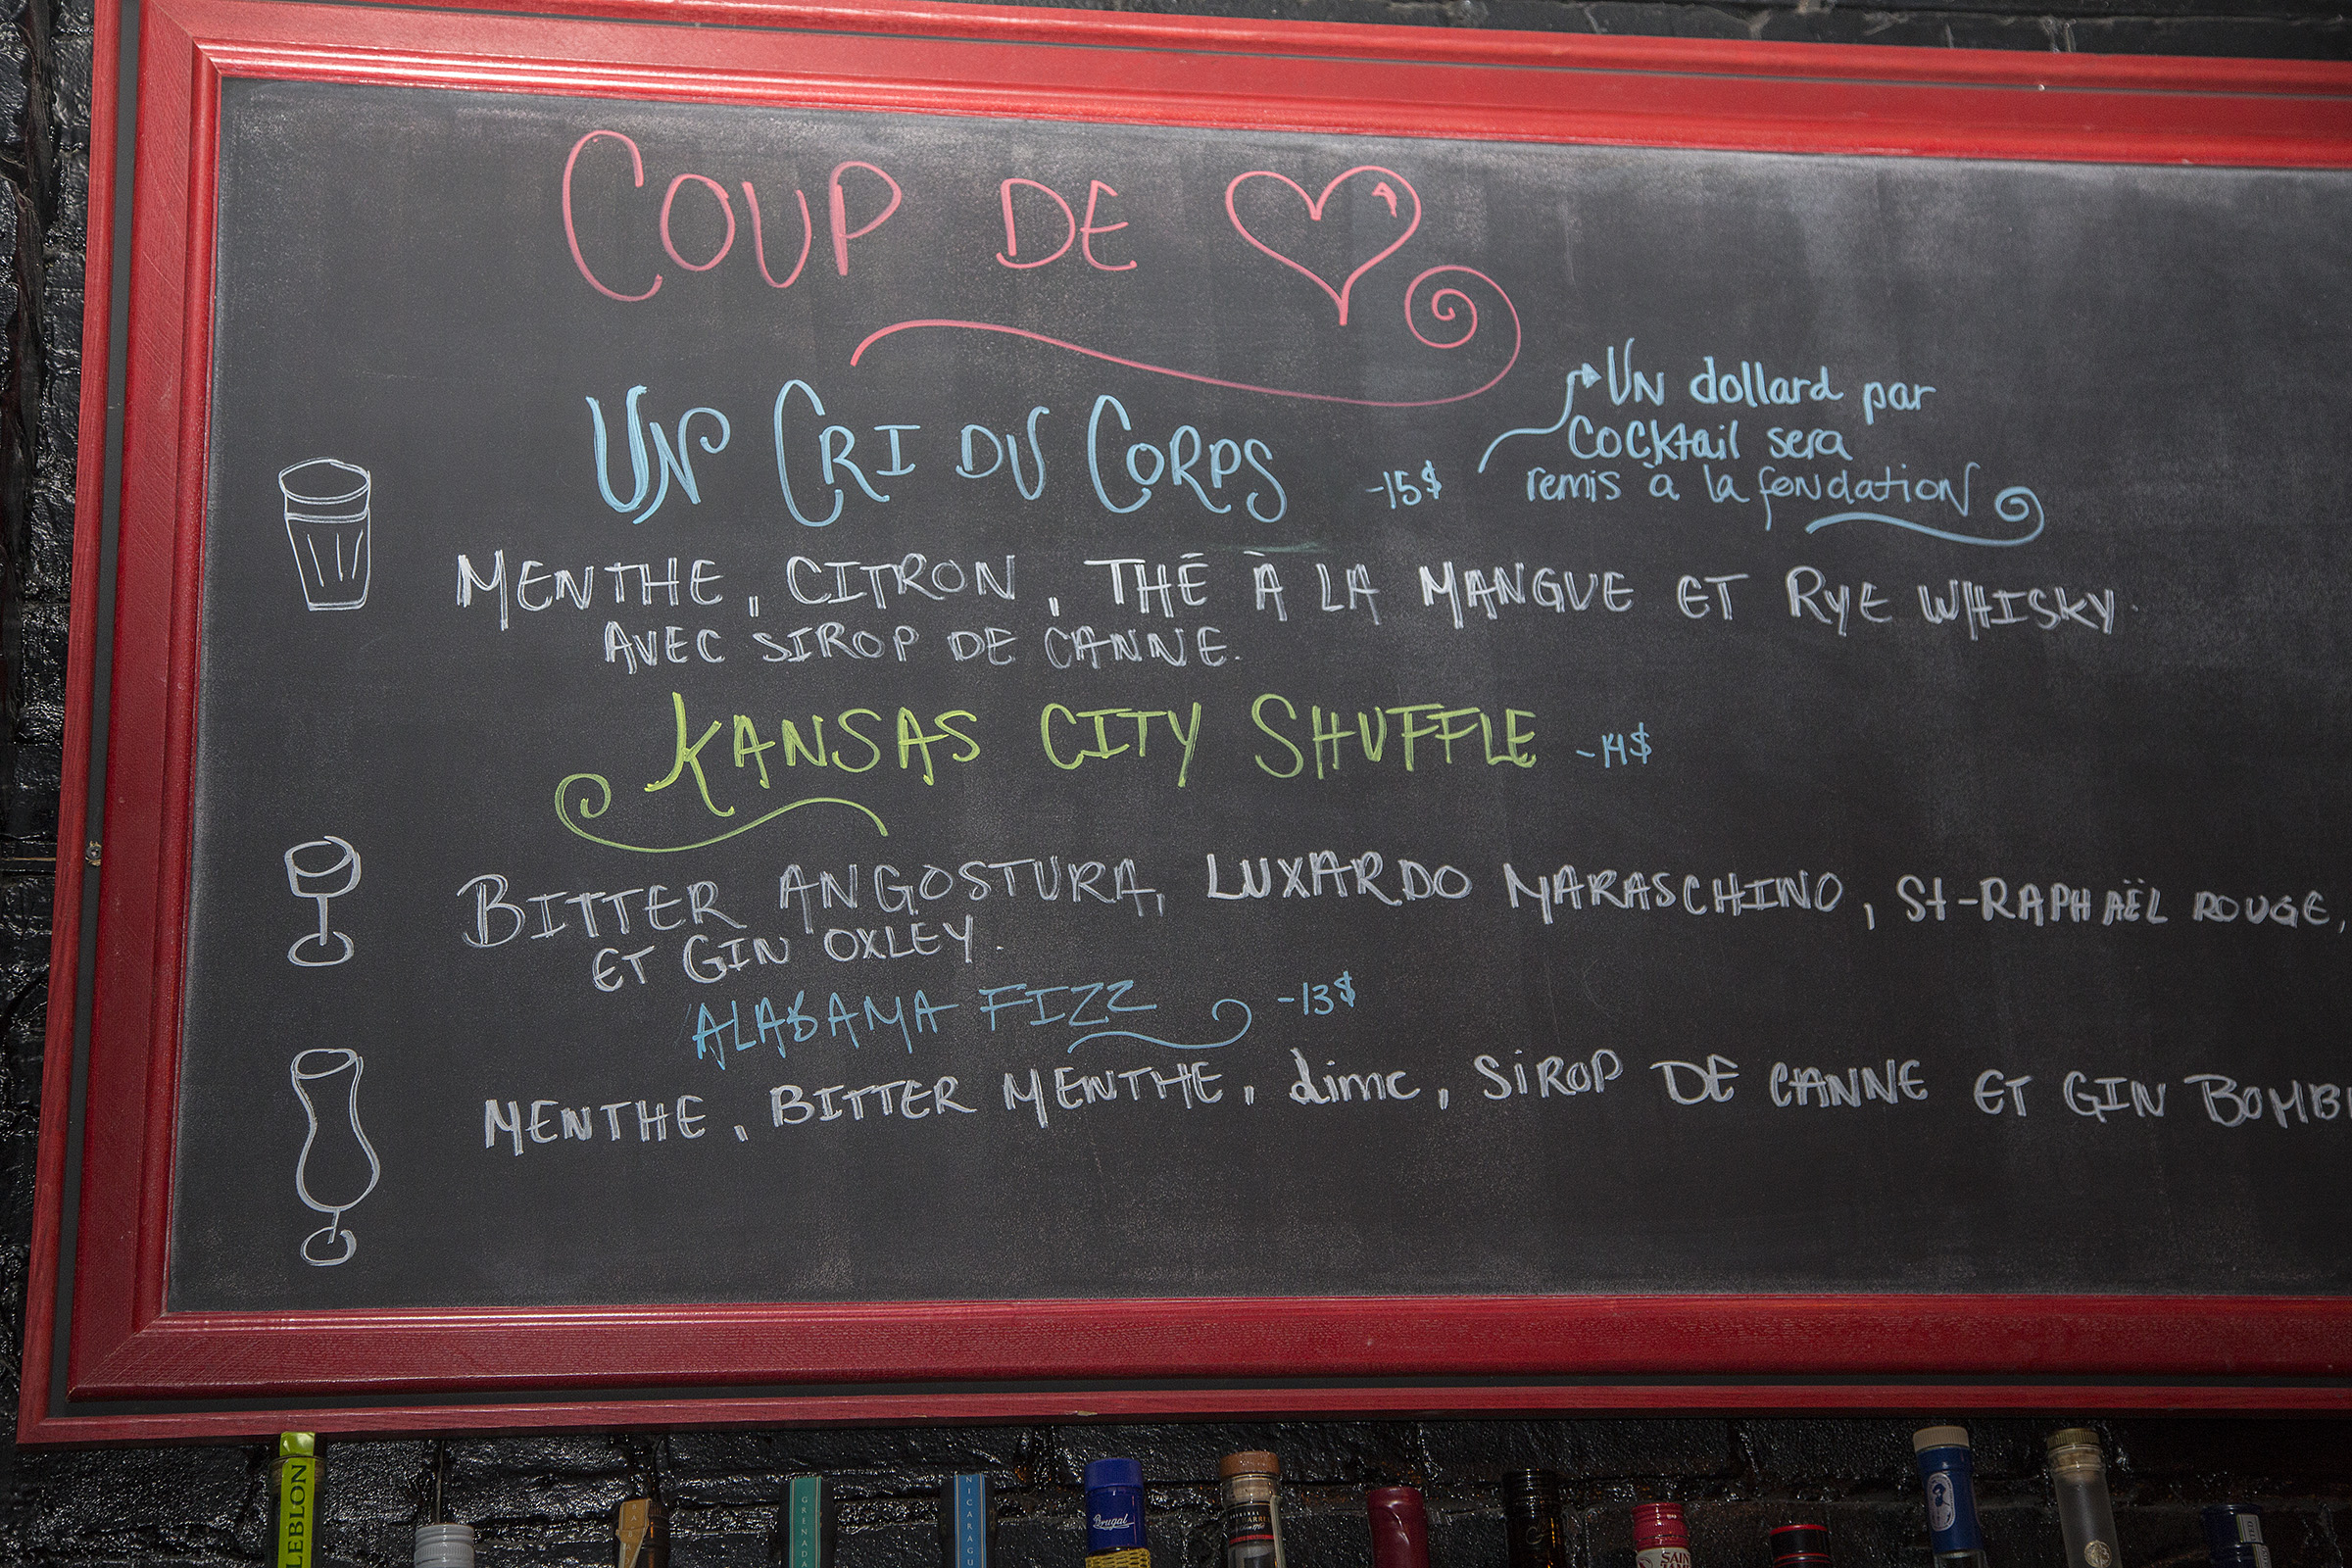 COUP DE
UN CRI DU CORPS -15$
UN dollard par
COCKtail sera
remis à la fondation
MENTHE, CITRON, THÉ À LA MANGUE ET RYE WHISKY.
AVEC SIROP DE CANNE.
KANSAS CITY SHUFFLE -14$
BITTER ANGOSTURA, LUXARDO MARASCHINO, St-RAPHAËL ROUGE,
ET GIN OXLEY.
ALABAMA FIZZ -13$
MENTHE, BITTER MENTHE, lime, SiROP DE CANNE ET GIN BOMB
LEBLON
GRENADA
NICARAGU
Brugal
SAIN